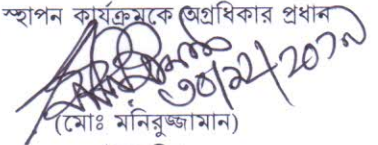 স্থাপন কার্যক্রমকে অগ্রধিকার প্রধান
৩০/১২/২০১৭
(মোঃ মনিরুজ্জামান)